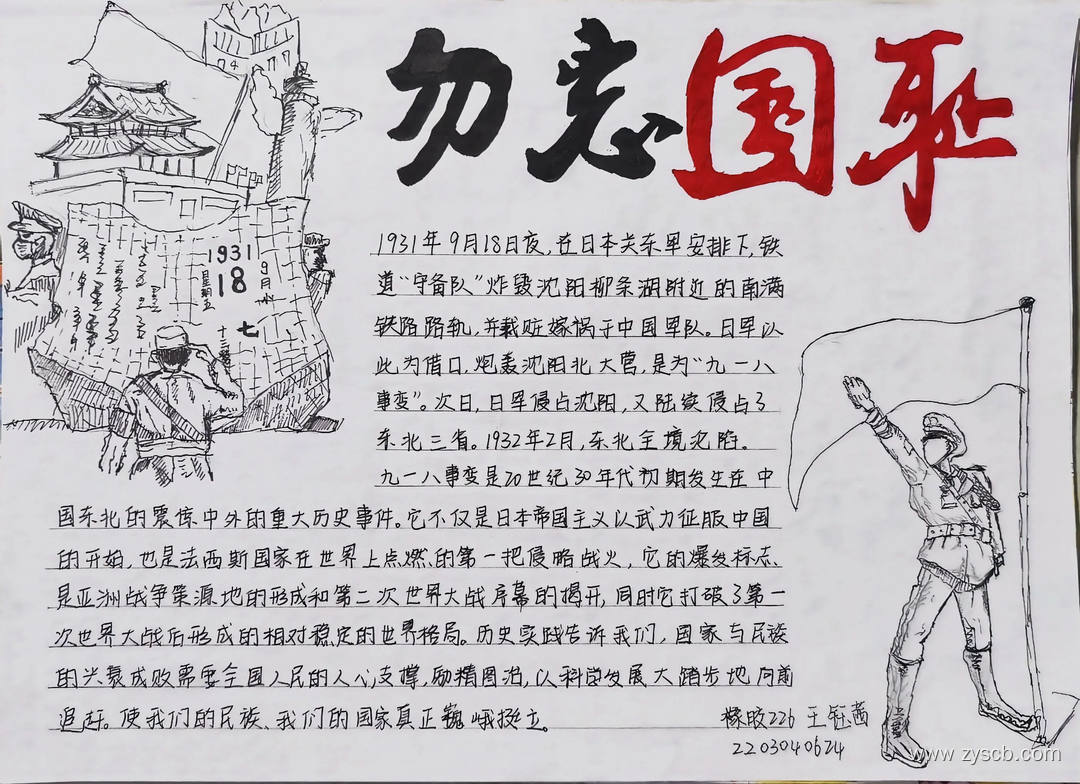 勿忘国耻
1931
9月
18
星期五
十三
七
1931年9月18日夜,在日本关东军安排下,铁
道“守备队”炸毁沈阳柳条湖附近的南满
铁路路轨,并栽赃嫁祸于中国军队。日军以
此为借口,炮轰沈阳北大营,是为“九一八
事变”。次日,日军侵占沈阳,又陆续侵占了
东北三省。1932年2月,东北全境沦陷。
九一八事变是20世纪30年代初期发生在中
国东北的震惊中外的重大历史事件。它不仅是日本帝国主义以武力征服中国
的开始,也是法西斯国家在世界上点燃的第一把侵略战火,它的爆发标志、
是亚洲战争策源地的形成和第二次世界大战序幕的揭开,同时它打破了第一
次世界大战后形成的相对稳定的世界格局。历史实践告诉我们,国家与民族
的兴衰成败需要全国人民的人心支撑,励精图治,以科学发展大踏步地向前
追赶。使我们的民族、我们的国家真正巍峨挺立。
橡胶226 王钰茜
2203040624
www.zyscb.com